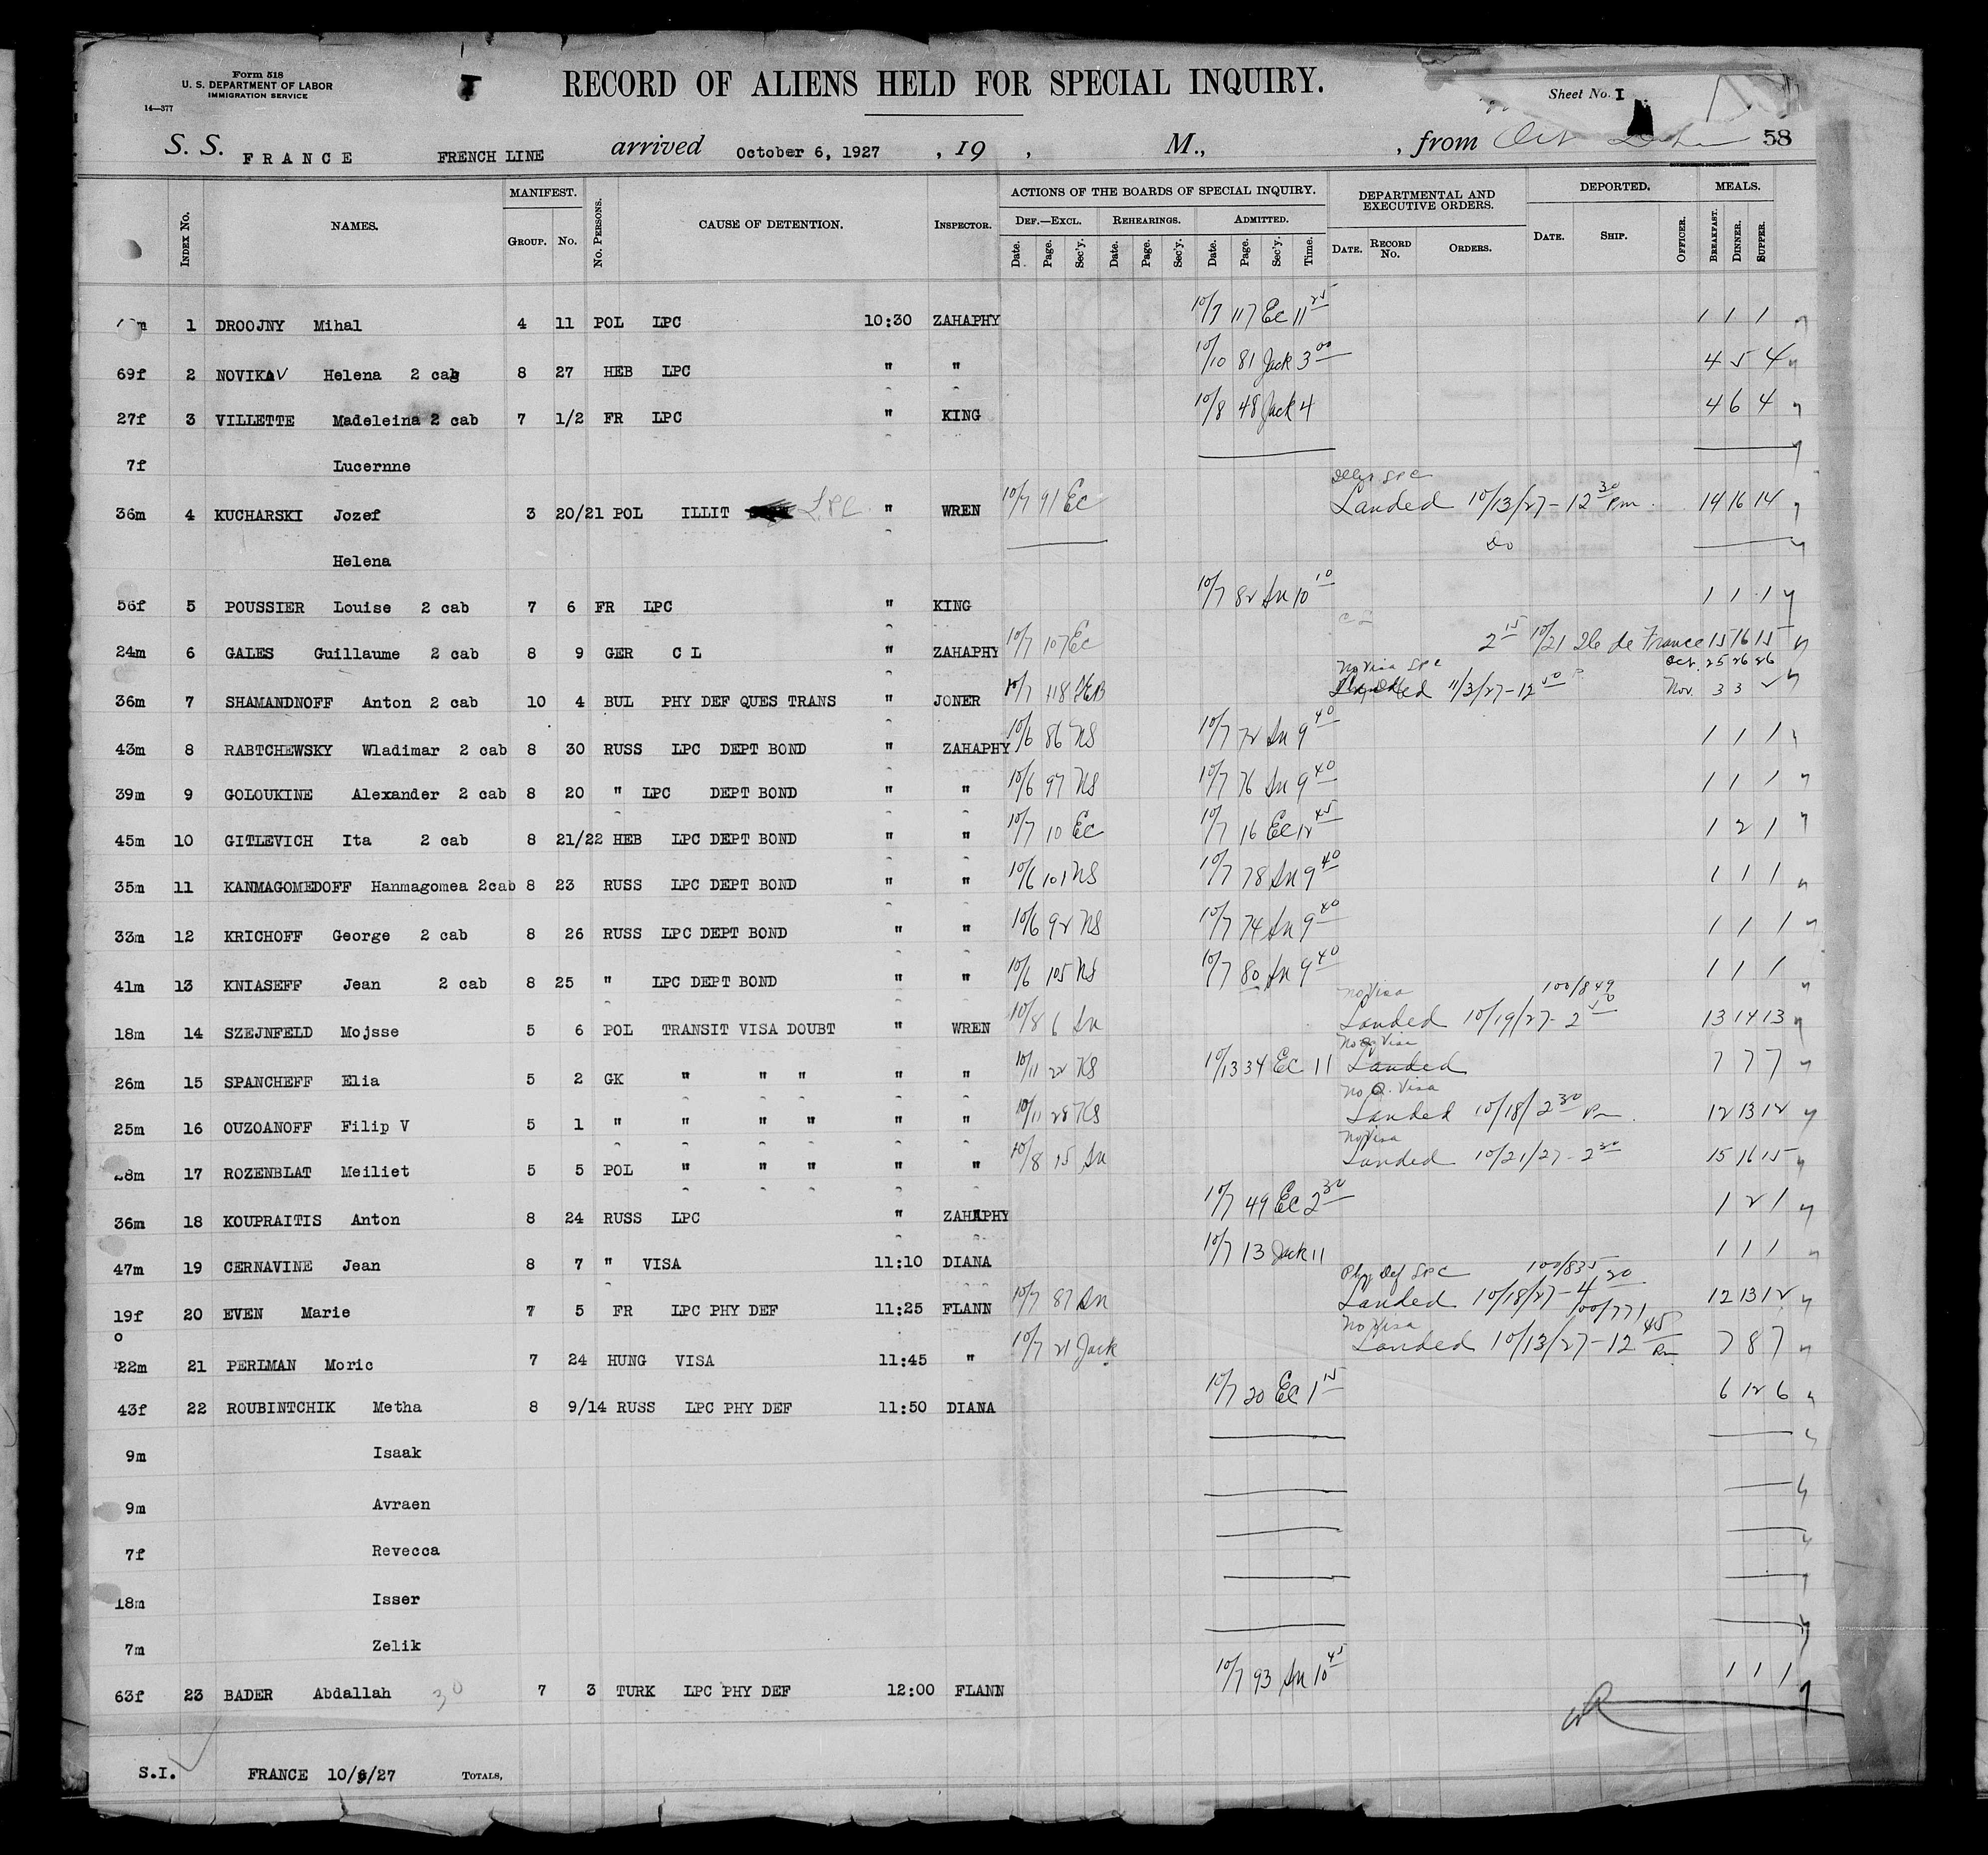 Form 518
U. S. DEPARTMENT OF LABOR
IMMIGRATION SERVICE
14—377
RECORD OF ALIENS HELD FOR SPECIAL INQUIRY.
Sheet No. I
S. S. FRANCE FRENCH LINE arrived October 6, 1927 , 19 , M., , from 58
Index No. NAMES. MANIFEST. GROUP. No. No. PERSONS. CAUSE OF DETENTION. INSPECTOR. ACTIONS OF THE BOARDS OF SPECIAL INQUIRY. DEPARTMENTAL AND EXECUTIVE ORDERS. DEPORTED. MEALS.
DEF.—EXCL. REHEARINGS. ADMITTED.
Date. Page. Sec'y. Date. Page. Sec'y. Date. Page. Sec'y. Time. DATE. RECORD No. ORDERS. DATE. SHIP. OFFICER. BREAKFAST. DINNER. SUPPER.
m 1 DROOJNY Mihal 4 11 POL LPC 10:30 ZAHAPHY 10/7 117 Ec 11 25 1 1 1
69f 2 NOVIKAV Helena 2 cab 8 27 HEB LPC " " 10/10 81 Jack 3 00 4 5 4
27f 3 VILLETTE Madeleina 2 cab 7 1/2 FR LPC " KING 10/8 48 Jack 4 4 6 4
7f Lucernne
36m 4 KUCHARSKI Jozef 3 20/21 POL ILLIT LPC " WREN 10/7 91 Ec Landed 10/13/27 - 12 30 Pm. 14 16 14
Helena Do
56f 5 POUSSIER Louise 2 cab 7 6 FR LPC " KING 10/7 82 Sn 10 10 1 1 1
24m 6 GALES Guillaume 2 cab 8 9 GER C L " ZAHAPHY 10/7 107 Ec CL 2 15 10/21 Ile de France 15 16 15
36m 7 SHAMANDNOFF Anton 2 cab 10 4 BUL PHY DEF QUES TRANS " JONER 10/7 118 No Visa LPC 11/3/27 - 12 50 Oct. 25 26 26 Nov. 3 3 2
43m 8 RABTCHEWSKY Wladimar 2 cab 8 30 RUSS LPC DEPT BOND " ZAHAPHY 10/6 86 NS 10/7 72 Sn 9 40 1 1 1
39m 9 GOLOUKINE Alexander 2 cab 8 20 " LPC DEPT BOND " " 10/6 97 NS 10/7 76 Sn 9 40 1 1 1
45m 10 GITLEVICH Ita 2 cab 8 21/22 HEB LPC DEPT BOND " " 10/7 10 Ec 10/7 16 Ec 12 45 1 2 1
35m 11 KANMAGOMEDOFF Hanmagomea 2cab 8 23 RUSS LPC DEPT BOND " " 10/6 101 NS 10/7 78 Sn 9 40 1 1 1
33m 12 KRICHOFF George 2 cab 8 26 RUSS LPC DEPT BOND " " 10/6 92 NS 10/7 74 Sn 9 40 1 1 1
41m 13 KNIASEFF Jean 2 cab 8 25 " LPC DEPT BOND " " 10/6 105 NS 10/7 80 Sn 9 40 1 1 1
18m 14 SZEJNFELD Mojsse 5 6 POL TRANSIT VISA DOUBT " WREN 10/8 6 Sn No Visa 100/849 Landed 10/19/27 - 2 50 13 14 13
26m 15 SPANCHEFF Elia 5 2 GK " " " " " 10/11 22 NS 10/13 34 Ec 11 No Q. Visa Landed 7 7 7
25m 16 OUZOANOFF Filip V 5 1 " " " " " " 10/11 28 NS No Q. Visa Landed 10/18/ 2 30 Pm. 12 13 12
28m 17 ROZENBLAT Meiliet 5 5 POL " " " " " 10/8 15 Sn No Visa Landed 10/21/27 - 2 30 15 16 15
36m 18 KOUPRAITIS Anton 8 24 RUSS LPC " ZAHAPHY 10/7 49 Ec 2 30 1 2 1
47m 19 CERNAVINE Jean 8 7 " VISA 11:10 DIANA 10/7 13 Jack 11 1 1 1
19f 20 EVEN Marie 7 5 FR LPC PHY DEF 11:25 FLANN 10/7 87 Sn Phy Def LPC 100/835 Landed 10/18/27 - 4 20 12 13 12
22m 21 PERLMAN Moric 7 24 HUNG VISA 11:45 " 10/7 21 Jack No Visa 100/771 Landed 10/13/27 - 12 45 Pm 7 8 7
43f 22 ROUBINTCHIK Metha 8 9/14 RUSS LPC PHY DEF 11:50 DIANA 10/7 20 Ec 1 15 6 12 6
9m Isaak
9m Avraen
7f Revecca
18m Isser
7m Zelik
63f 23 BADER Abdallah 30 7 3 TURK LPC PHY DEF 12:00 FLANN 10/7 93 Sn 10 45 1 1 1
S.I. FRANCE 10/6/27 TOTALS,